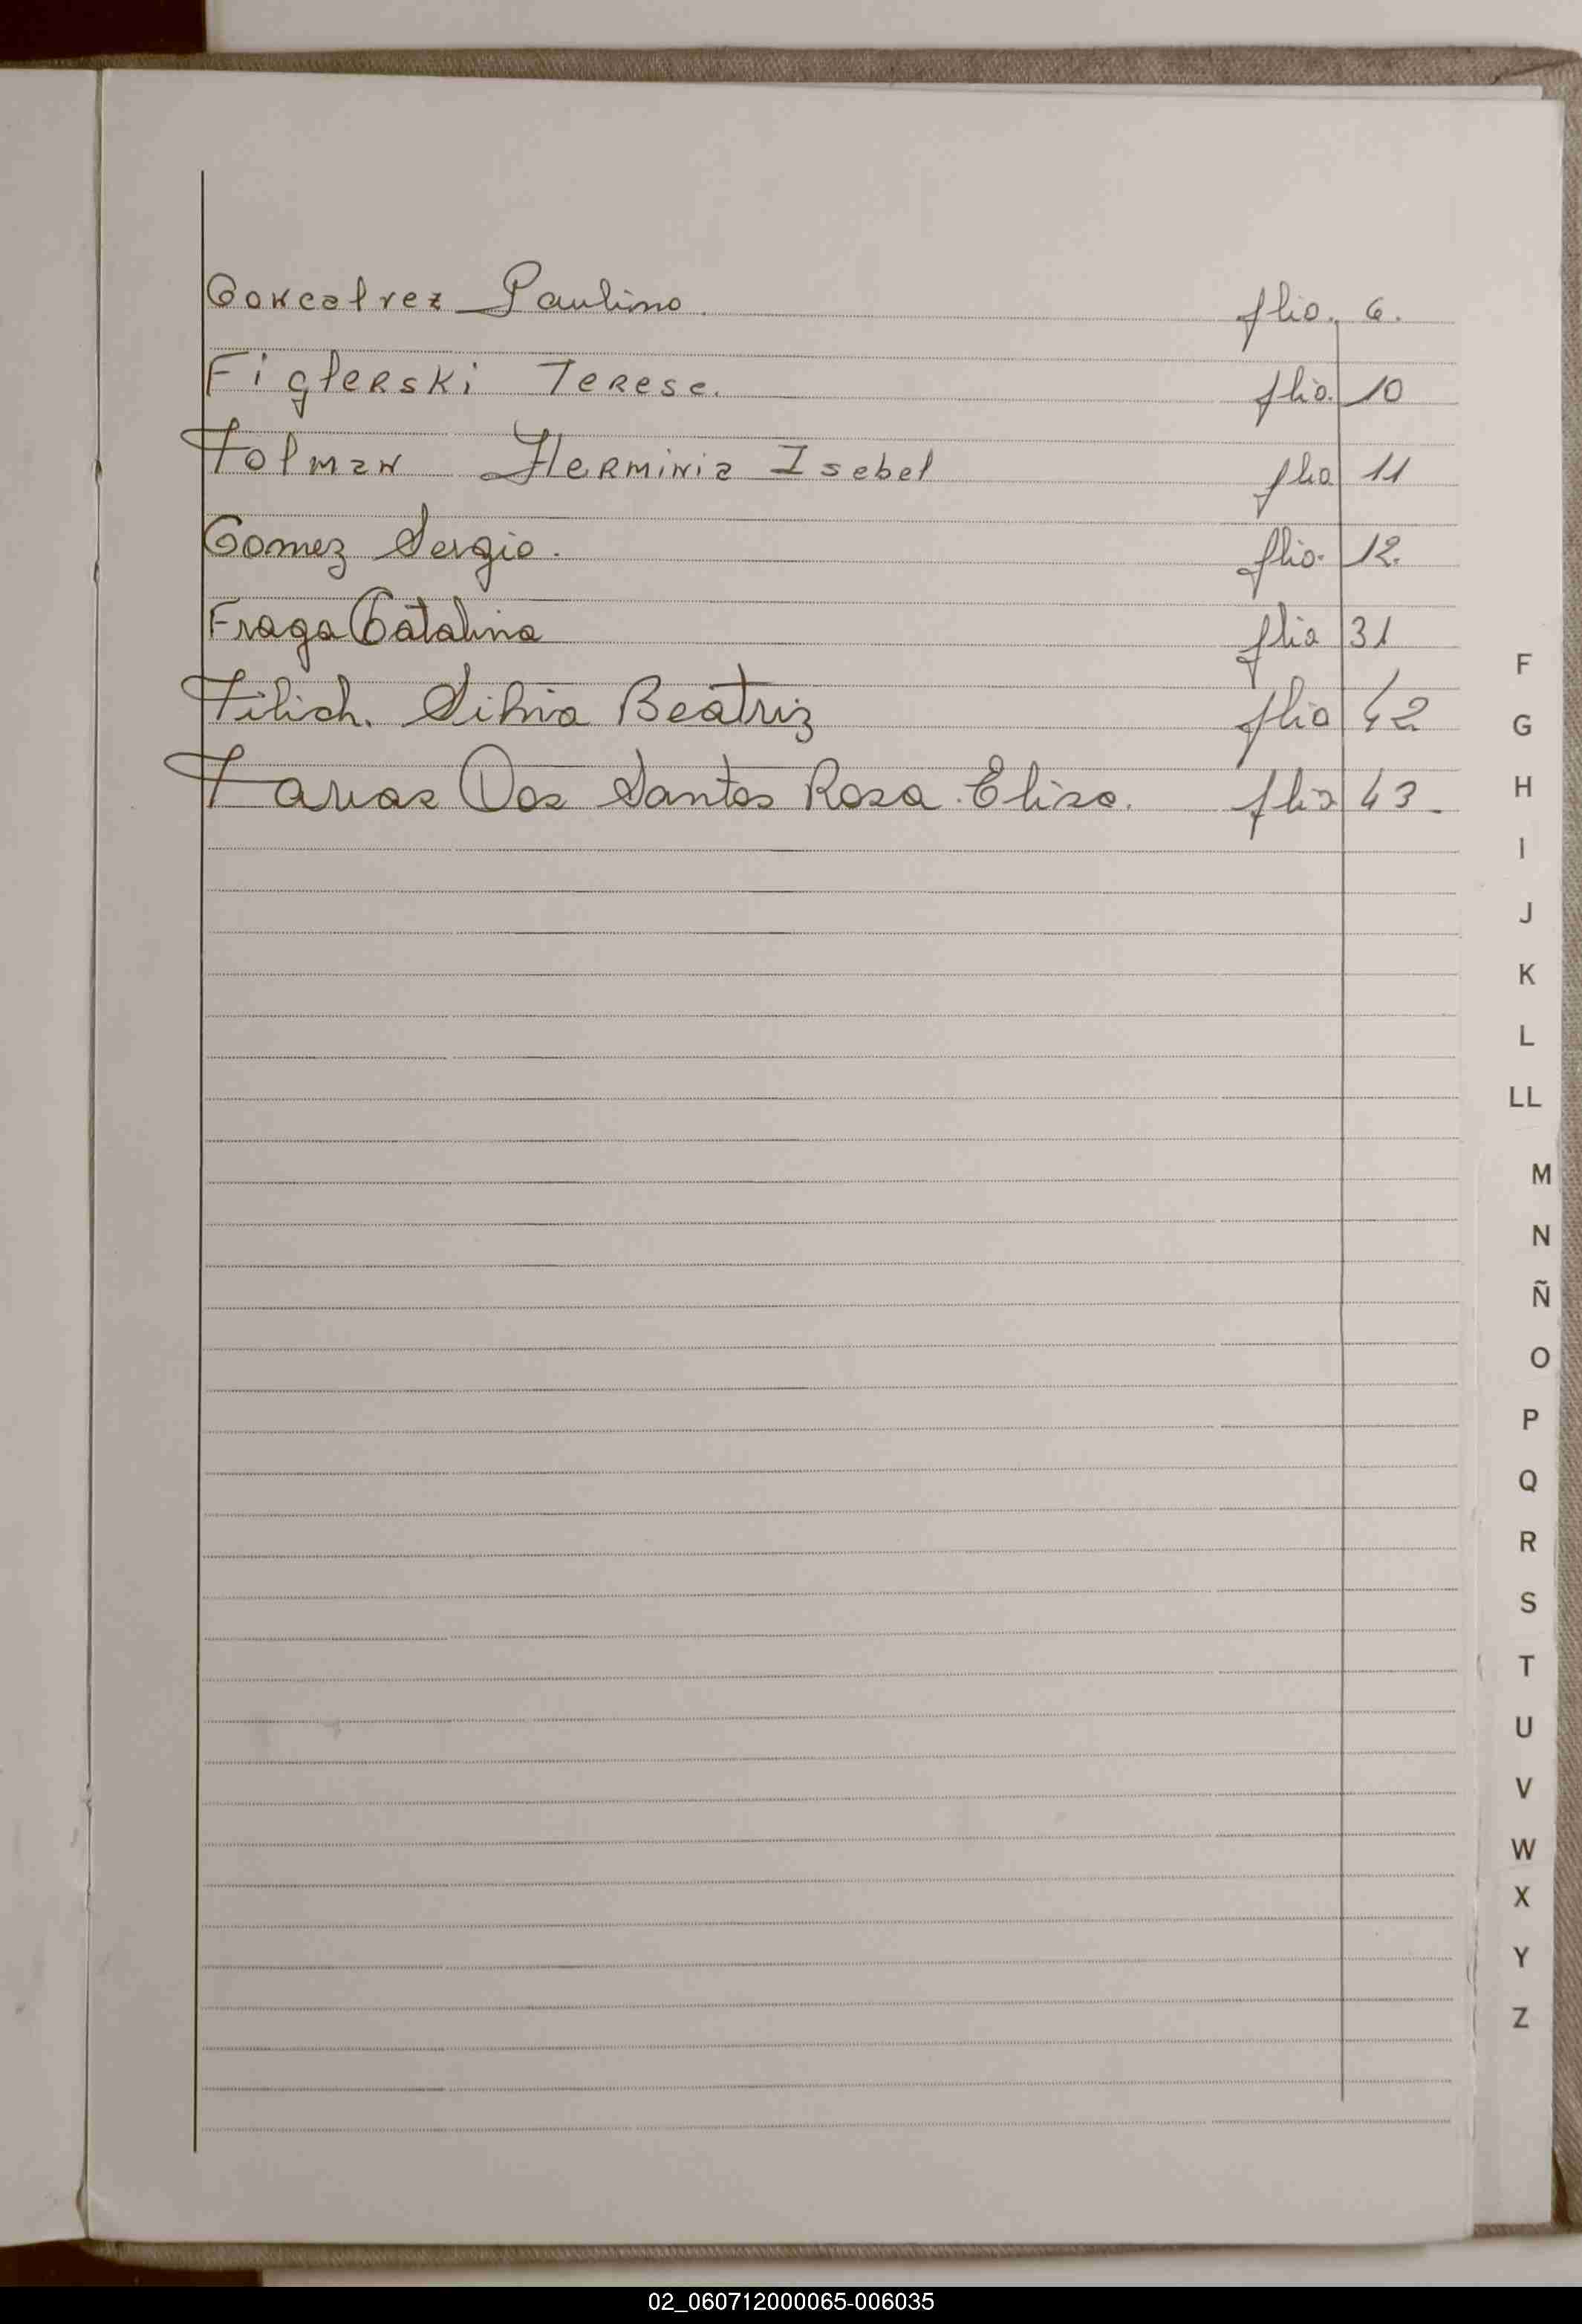 Goncalvez Paulino. flio. 6.
Figlerski Terese. flio. 10
Folman Herminia Isabel flio 11
Gomez Sergio. flio. 12.
Fraga Catalina flio 31
Filich. Silvia Beatriz flio 42
Farias Dos Santos Rosa Elisa. flio 43
F
G
H
I
J
K
L
LL
M
N
Ñ
O
P
Q
R
S
T
U
V
W
X
Y
Z
02_060712000065-006035